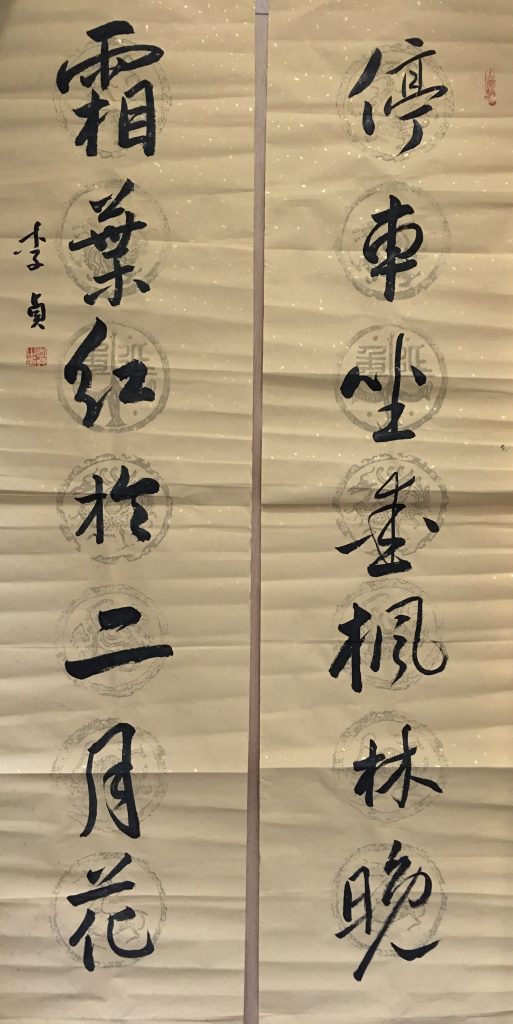 停車坐愛楓林晚
霜葉紅於二月花
李貞